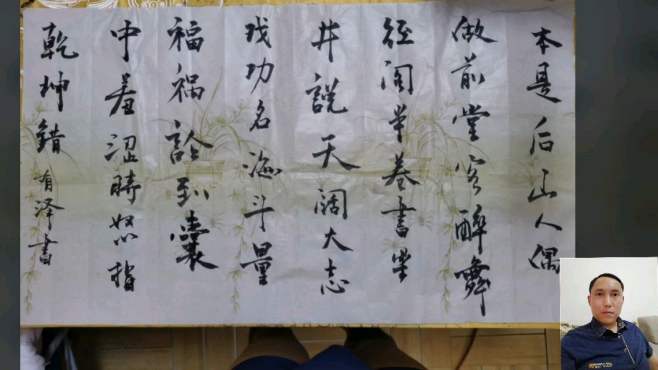 本是后山人偶
做前堂客醉舞
经阁半卷書坐
井說天阔大志
戏功名海斗量
福祸論到囊
中羞涩時怒指
乾坤錯 有泽書